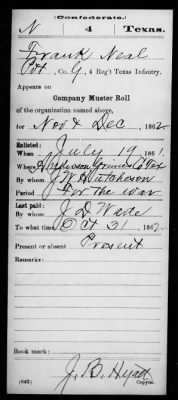 (Confederate.)
N 4 Texas.
Frank Neal
Pvt, Co. G, 4 Reg't Texas Infantry.
Appears on
Company Muster Roll
of the organization named above,
for Nov & Dec, 1862.
Enlisted:
When July 19, 1861.
Where Anderson Grimes Co Tex
By whom J W Hutcheson
Period For the war
Last paid:
By whom J D Wade
To what time Oct 31, 1862.
Present or absent Present
Remarks:
Book mark:
J. B. Hyatt
(642) Copyist.